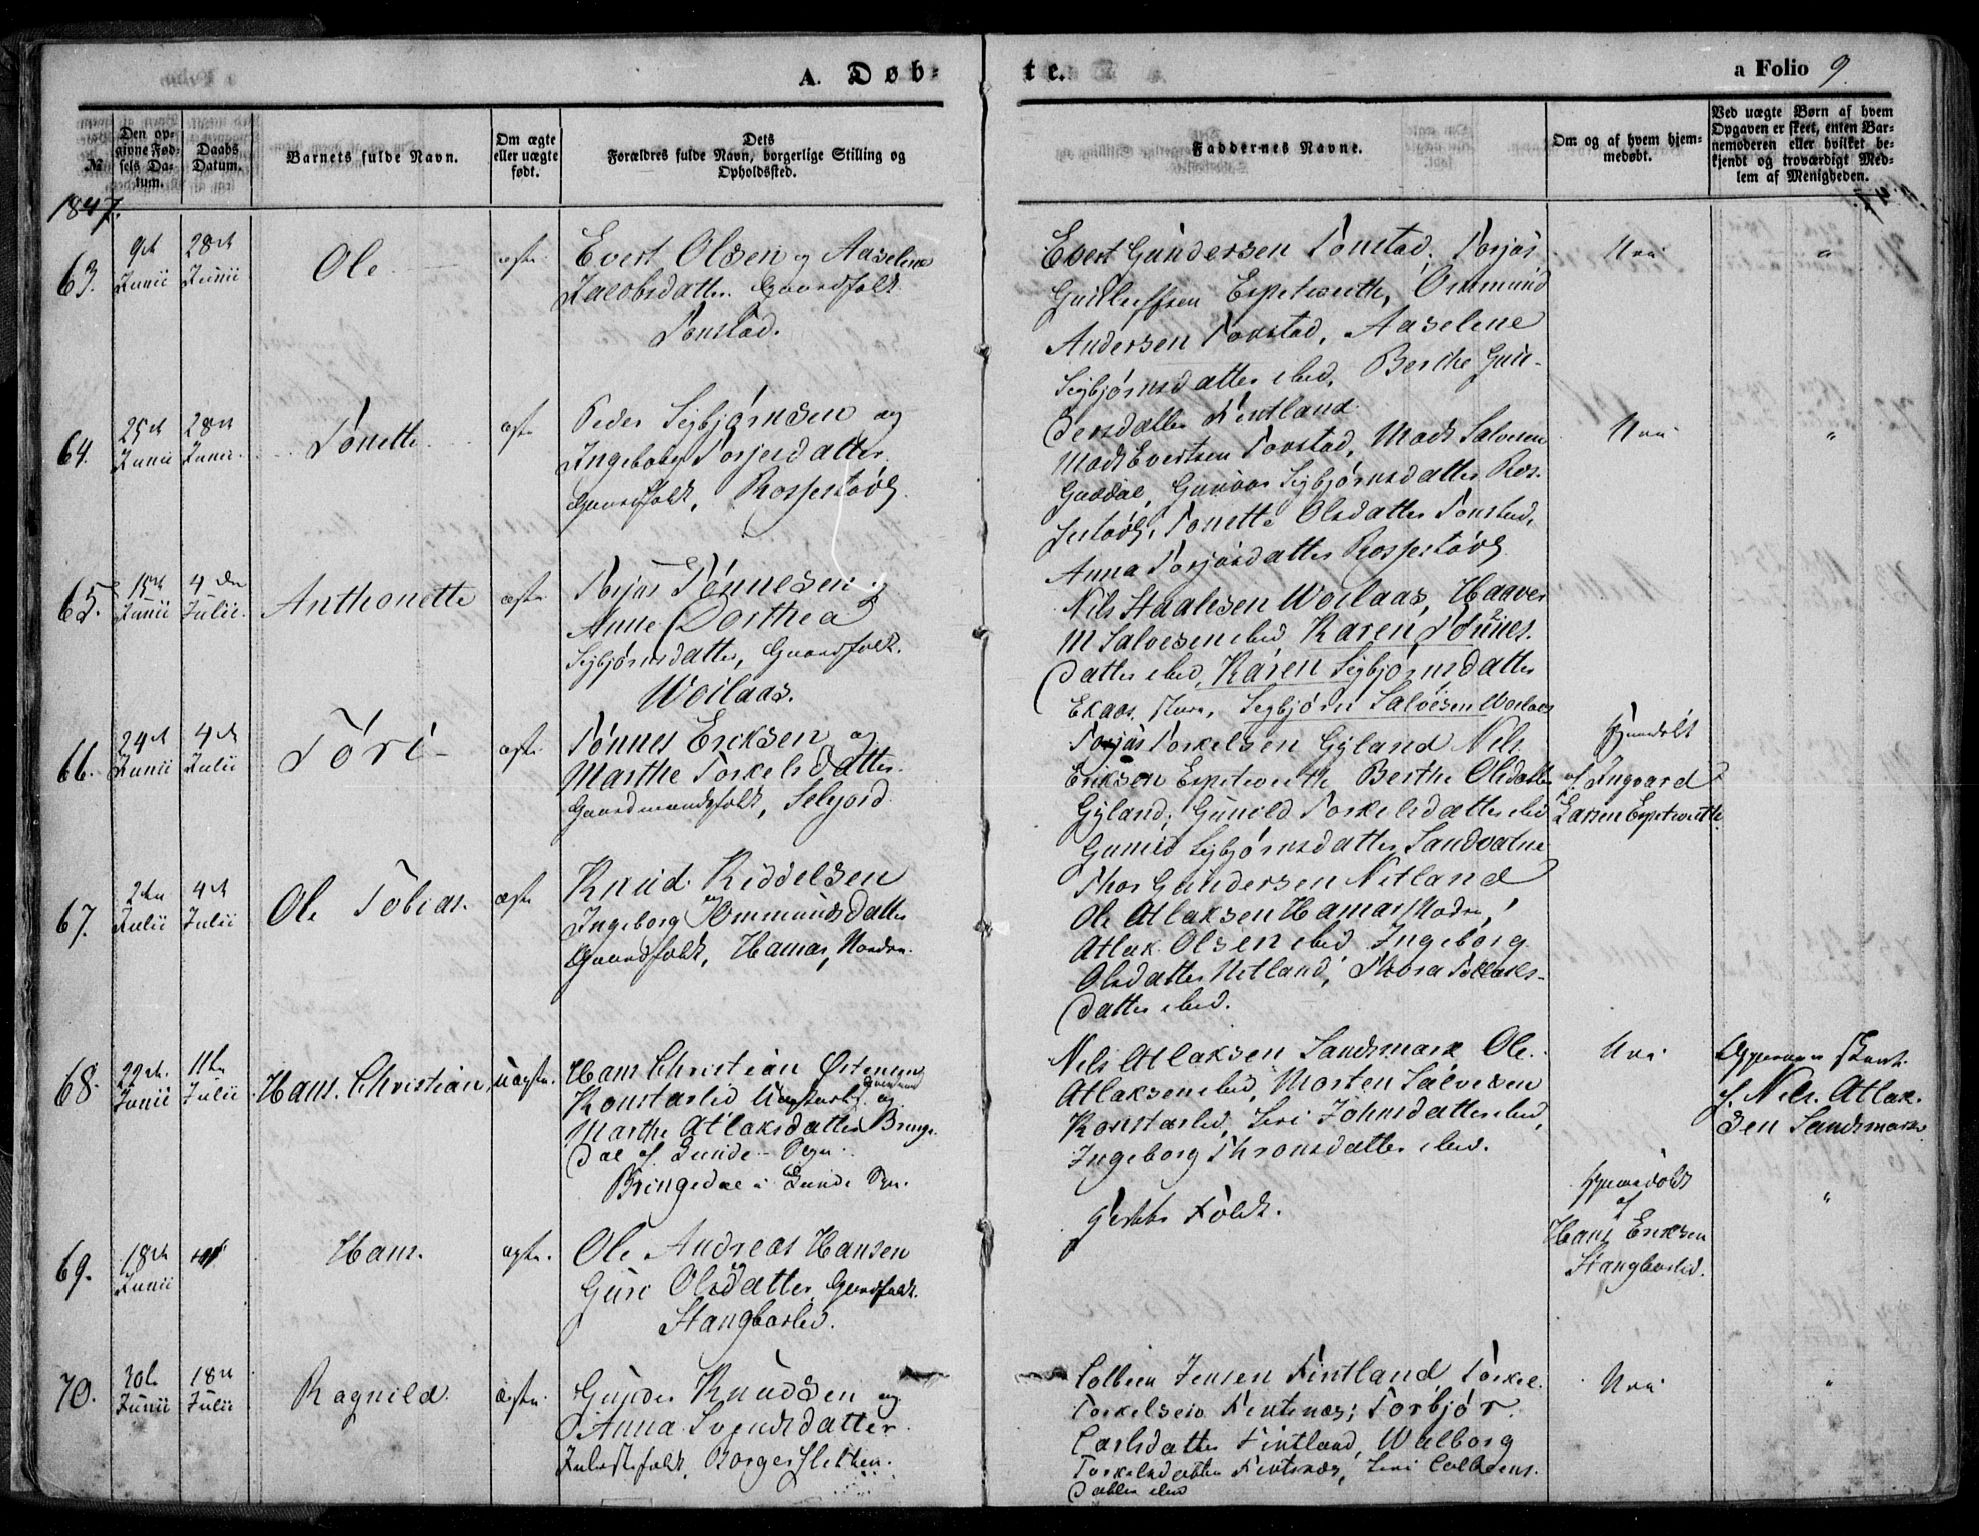 A. Døb-
te.
a Folio 9.
№
Den opgivne Fødsels Datum.
Daabs Datum.
Barnets fulde Navn.
Om ægte eller uægte født.
Dets Forældres fulde Navn, borgerlige Stilling og Opholdssted.
Faddernes Navne.
Om og af hvem hjemmedøbt.
Ved uægte Børn af hvem Opgaven er skeet, enten Barnemoderen eller hvilket bekjendt og troværdigt Medlem af Menigheden.
1847.
63.
9de Junii
28de Junii
Ole
ægte
Evert Olsen og Aaselene
Jacobsdatter Gaardfolk
Tonstad.
Evert Gundersen Tonstad, Torjus
Gunleffsen Espetveeth, Ommund
Andersen Tonstad, Aaselene
Sigbjørnsdatter ibid, Berthe Gun-
dersdatter Fintland
Nei
"
64.
25de Junii
28de Junii
Tonette
ægte
Peder Sigbjørnsen og
Ingeborg Torjersdatter
Gaardfolk, Rosjestøvl
Mads Evertsen Tonstad, Mads Salvesen
Guddal, Gunvor Sigbjørnsdatter Ros-
jestøvl, Tonette Olsdatter Tonstad,
Anna Torjusdatter Rosjestøvl
Nei
"
65.
15de Junii
4de Julii
Anthonette
ægte
Torjus Tønnesen og
Anne Dorthea
Sigbjørnsdatter, Gaardfolk.
Woilaas.
Nils Staalesen Woilaas, Haaver
M Salvesen ibid Karen Tønnes-
datter ibid, Karen Sigbjørnsdatter
Ekaas, Sigbjørn Salvesen Woilaas
66.
24de Junii
4de Julii
Tóri
ægte
Tønnes Ericksen og
Marthe Torkelsdatter
Gaardmandsfolk, Selejord
Torjus Torkelsen Gyland Nils
Eriksen Espetveeth Berthe Olsdatter
Gyland, Gunild Torkelsdatter ibid
Gunild Sigbjørnsdatter Sandvatne
Hjemdøbt
af Ingvard
Larsen Espetveeth
67.
2den Julii
4de Julii
Ole Tobias.
ægte
Knud Reddelsen
og
Ingeborg Ommundsdatter
Gaardfolk, Hamar, Nordre.
Thor Gundersen Netland
Ole Atlaksen Hamar Nodre,
Atlak Olsen ibid Ingeborg
Olsdatter Netland, Thora Tollaks-
datter ibid.
68.
29de Junii
11te Julii
Hans Christian,
uægte.
Hans Christian Østensen
Konstalid Ungkarl og
Marthe Atlaksdatter Bringe-
dal af Lunde Sogn
Bringedal i Lunde Sgn.
Nils Atlaksen Sandsmark Ole
Atlaksen ibid, Morten Salvesen
Konstalid, Siri Johnsdatter ibid,
Ingeborg Thronsdatter ibid.
Nei
Opgaven skeet
af Nils Atlak-
sen Sandsmark
69.
18de Junii
Hans.
ægte.
Ole Andreas Hansen
og
Guri Olsdatter, Gaardfolk.
Stangborlid.
Folk.
Hjemdøbt
af
Hans Eriksen
Stangborlid.
"
70.
30te Junii
18de Julii
Ragnild
ægte
Gunder Knudsen og
Anna Svendsdatter
Inderstefolk, Borgersletten.
Colben Jensen Fintland, Torkel
Torkelsen Fintenæs, Torbjør
Carlsdatter Fintland, Walborg
Torkelsdatter Fintenæs, Siri Colbens-
datter ibid
Nei
"